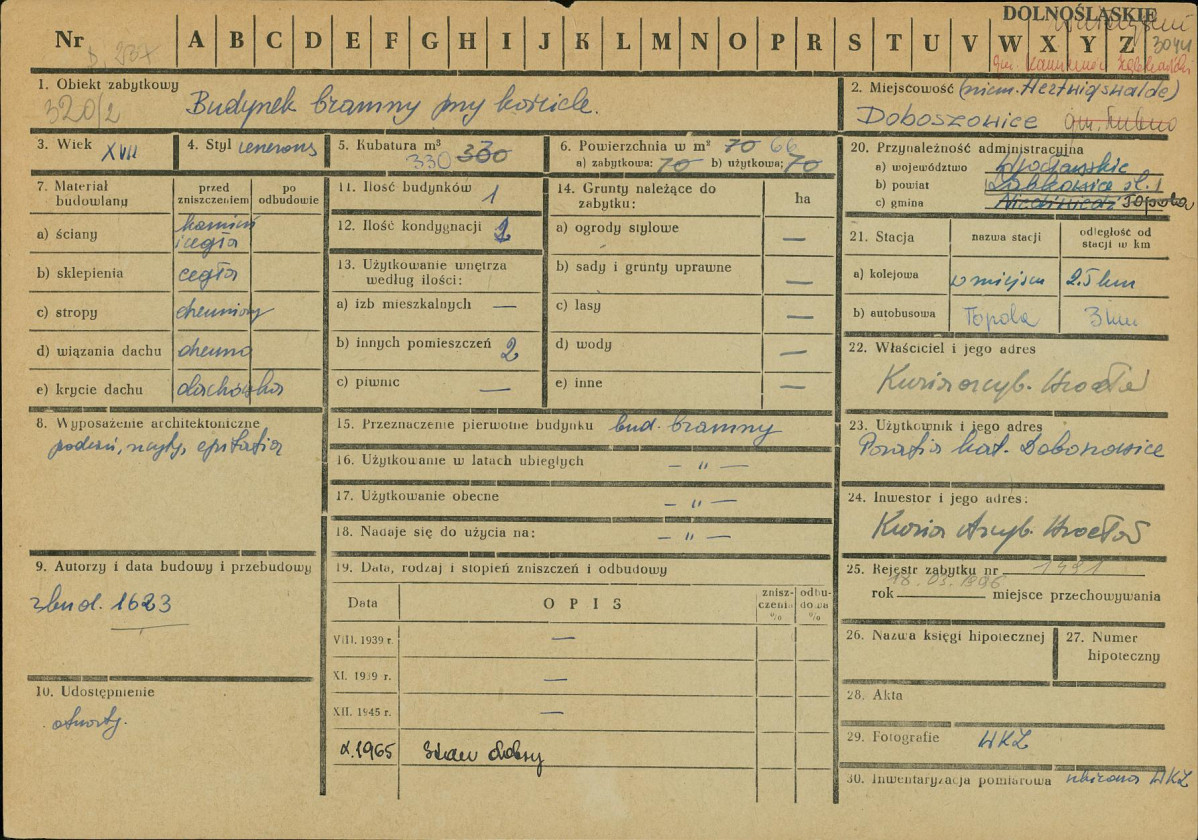 DOLNOŚLĄSKIE
Nr A B C D E F G H I J K L M N O P R S T U V W X Y Z
gm. Kamieniec Ząbkowicki
1. Obiekt zabytkowy
320/2
Budynek bramny przy kościele.
2. Miejscowość (niem. Hertwigswalde)
Doboszowice
3. Wiek XVII
4. Styl renesans
5. Kubatura m³
330 330
6. Powierzchnia w m² 70 66
a) zabytkowa: 70 b) użytkowa; 70
20. Przynależność administracyjna
a) województwo Wrocławskie
b) powiat Ząbkowice śl.
c) gmina Niedźwiedź Topola
7. Materiał budowlany
przed zniszczeniem
po odbudowie
a) ściany kamień i cegła
b) sklepienia cegła
c) stropy drewniany
d) wiązania dachu drewno
e) krycie dachu dachówka
8. Wyposażenie architektoniczne
epitafia
9. Autorzy i data budowy i przebudowy
zbud. 1623
10. Udostępnienie
otwarty.
11. Ilość budynków 1
12. Ilość kondygnacji
13. Użytkowanie wnętrza według ilości:
a) izb mieszkalnych —
b) innych pomieszczeń 2
c) piwnic —
14. Grunty należące do zabytku:
ha
a) ogrody stylowe —
b) sady i grunty uprawne —
c) lasy —
d) wody —
e) inne —
15. Przeznaczenie pierwotne budynku bud. bramny
16. Użytkowanie w latach ubiegłych — „ —
17. Użytkowanie obecne — „ —
18. Nadaje się do użycia na: — „ —
19. Data, rodzaj i stopień zniszczeń i odbudowy
Data
OPIS
znisz-
czenia
%
odbu-
dowa
%
VIII. 1939 r. —
XI. 1939 r. —
XII. 1945 r. —
X.1965 Stan dobry
21. Stacja
nazwa stacji
odległość od stacji w km
a) kolejowa w miejscu 2.5 km
b) autobusowa Topola 3 km
22. Właściciel i jego adres
Kuria arcyb. Wrocław
23. Użytkownik i jego adres
Parafia kat. Doboszowice
24. Inwestor i jego adres:
Kuria Arcyb. Wrocław
25. Rejestr zabytku nr 1491
18.03.1996
rok miejsce przechowywania
26. Nazwa księgi hipotecznej
27. Numer hipoteczny
28. Akta
29. Fotografie WKZ
30. Inwentaryzacja pomiarowa WKZ